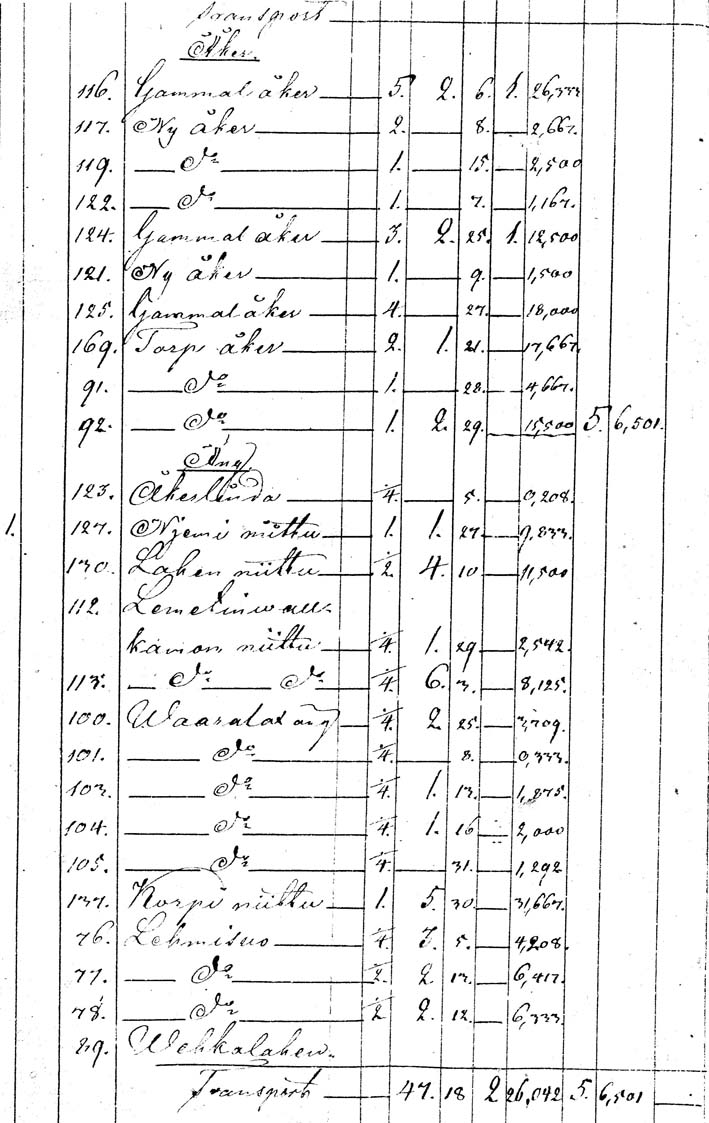 Transport
Åker.
116. Gammal åker 5. 2. 6. 1. 26,333
117. Ny åker 2. 8. 2,667.
119. Do 1. 15. 2,500
122. Do 1. 7. 1,167.
124. Gammal åker 3. 2. 25. 1. 12,500
121. Ny åker 1. 9. 1,500
125. Gammal åker 4. 27. 18,000
169. Torp åker 2. 1. 21. 17,667.
91. Do 1. 28. 4,667.
92. Do 1. 2. 29. 15,500 5. 6,501.
Äng
123. Åkerlinda 1/4. 5. 0,208.
1. 127. Njemi niittu 1. 1. 27 9,833.
130. Lahen niittu 1/2. 4. 10 11,500
112.
kanon niittu 1/4. 1. 29 2,542.
113. Do Do 1/4. 6. 3. 8,125.
100. Waaralax äng 1/4. 2 25. 3,709.
101. Do 1/4. 8. 0,333.
103. Do 1/4. 1. 13. 1,875.
104. Do 1/4. 1. 16 2,000
105. Do 1/4. 31. 1,292
137. Korpi niittu 1. 5. 30. 31,667.
76. Lehmisuo 1/4. 7. 5. 4,208.
77. Do 1/2. 2 13. 6,417.
78. Do 1/2 2. 12. 6,333.
29. Wehkalahen
Transport 47. 18 2 26,042 5. 6,501